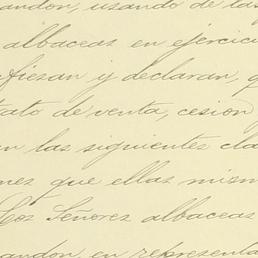 andon, usando de las
albaceas en ejercici
fiesan y declaran, q
tato de venta, cesion
n las siguientes cla
nes que ellas mism
Los Señores albaceas
andon, en representa